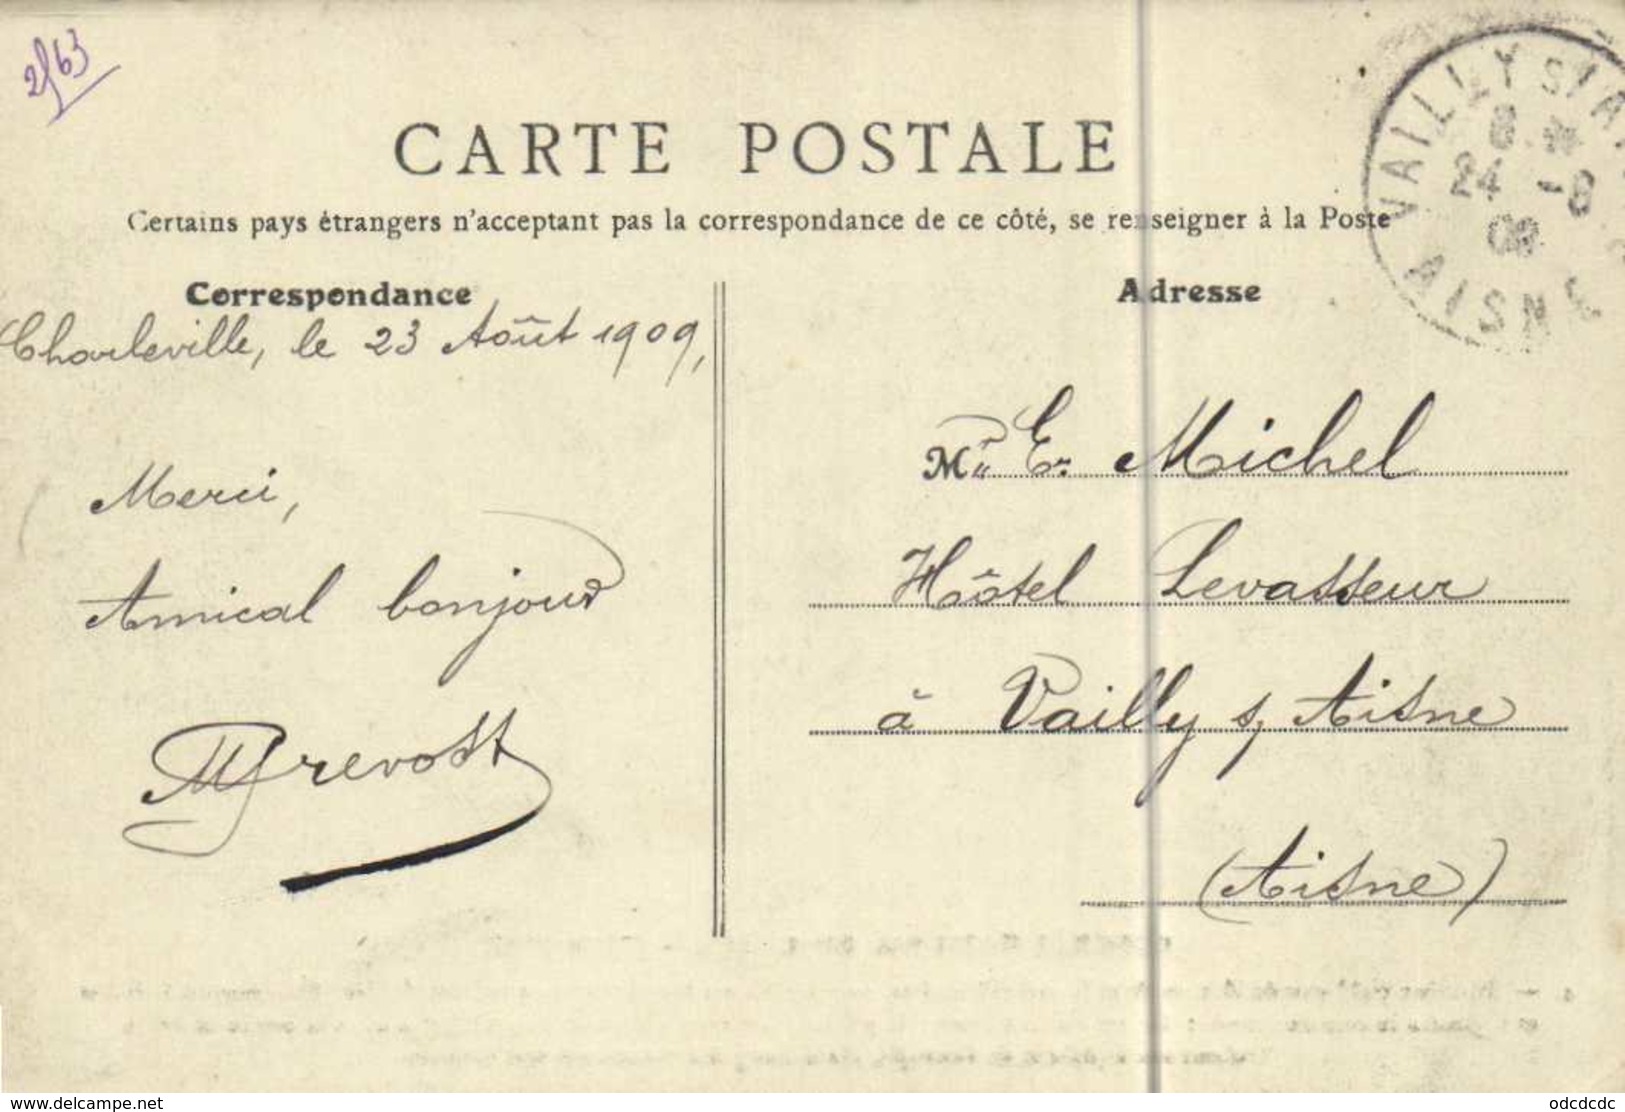 2/63
CARTE POSTALE
Certains pays étrangers n'acceptant pas la correspondance de ce côté, se renseigner à la Poste
Correspondance
Charleville, le 23 Août 1909,
Merci,
Amical bonjour
Prevost
Adresse
Mlle E. Michel
Hôtel Levasseur
à Vailly s/ Aisne
(Aisne)
VAILLY S/
24 -8
09
AISNE
www.delcampe.net
odcdcdc